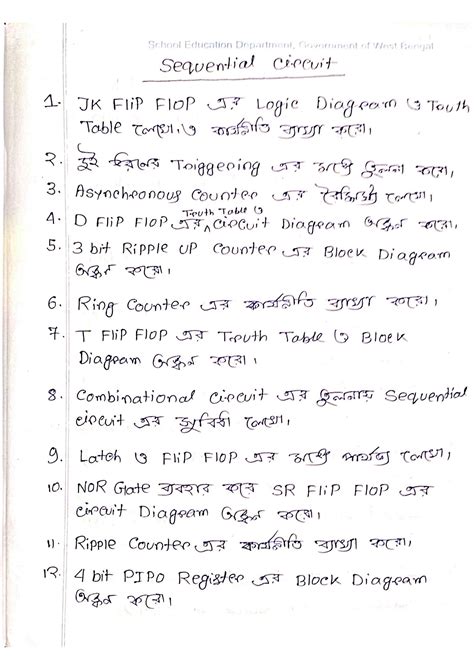 School Education Department, Government of West Bengal
Sequential Circuit
1. JK FliP FloP এর Logic Diagram ও Truth
Table লেখো, ও কার্যনীতি ব্যাখ্যা করো।
২. দুই ধরনের Triggering এর মধ্যে তুলনা করো,
3. Asynchronous Counter এর বৈশিষ্ট্য লেখো।
4. D FliP FloP এর Truth Table ও Circuit Diagram অঙ্কন করো,
5. 3 bit Ripple UP Counter এর Block Diagram
অঙ্কন করো।
6. Ring Counter এর কার্যনীতি ব্যাখ্যা করো।
7. T FliP FloP এর Truth Table ও Block
Diagram অঙ্কন করো।
8. Combinational Circuit এর তুলনায় Sequential
circuit এর সুবিধা লেখো,
9. Latch ও FliP FloP এর মধ্যে পার্থক্য লেখো,
10. NOR Gate ব্যবহার করে SR FliP FloP এর
circuit Diagram অঙ্কন করো।
11. Ripple Counter এর কার্যনীতি ব্যাখ্যা করো।
12. 4 bit PIPO Register এর Block Diagram
অঙ্কন করো,